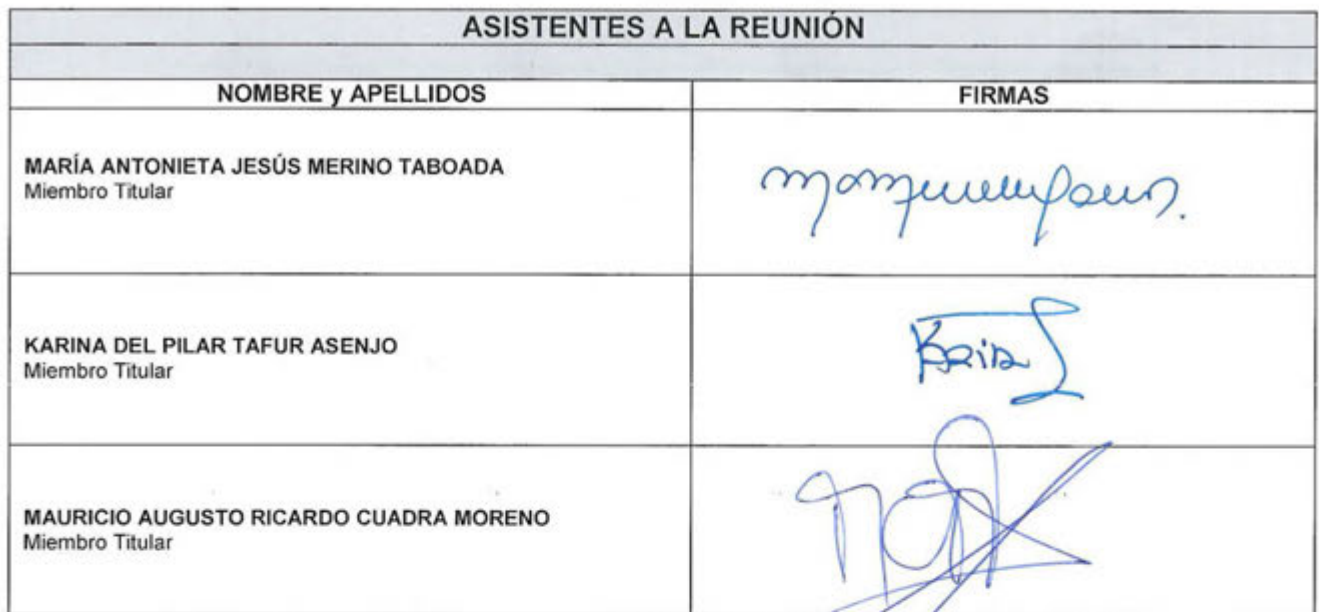 ASISTENTES A LA REUNIÓN
NOMBRE y APELLIDOS
FIRMAS
MARÍA ANTONIETA JESÚS MERINO TABOADA
Miembro Titular
KARINA DEL PILAR TAFUR ASENJO
Miembro Titular
MAURICIO AUGUSTO RICARDO CUADRA MORENO
Miembro Titular